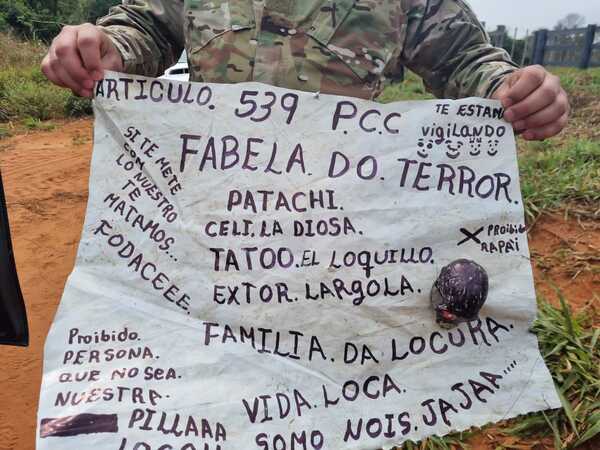 ARTICULO. 539 P.C.C
TE ESTAN
VIGILANDO
FABELA. DO. TERROR.
SI TE METE
CON
LO NUESTRO
TE
MATAMOS...
FODACEEE.
PATACHI.
CELI. LA DIOSA.
TATOO. EL LOQUILLO.
EXTOR. LARGOLA.
X PROIBIDO
RAPAI
FAMILIA. DA LOCURA.
Proibido.
PERSONA.
QUE NO SEA.
NUESTRA.
PILLAAA
VIDA. LOCA.
SOMO NOIS. JAJAA....